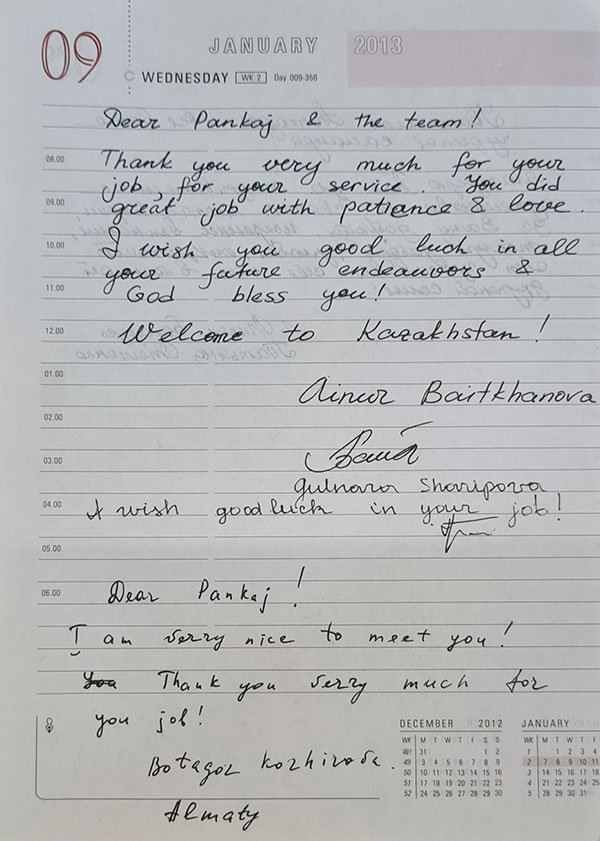 09
JANUARY 2013
WEDNESDAY WK 2 Day 009-356
Dear Pankaj & the team!
08.00
Thank you very much for your
job, for your service. You did
09.00
great job with patiance & love.
10.00
I wish you good luck in all
your future endeavors &
11.00
God bless you!
12.00
Welcome to Kazakhstan!
01.00
Ainur Baitkhanova
02.00
03.00
Gulnara Sharipova
04.00
I wish good luck in your job!
05.00
06.00
Dear Pankaj!
I am verry nice to meet you!
You Thank you verry much for
you job!
Botagoz Kozhirova.
Almaty
DECEMBER 2012
WK M T W T F S S
48/1 31 1 2
49 3 4 5 6 7 8 9
50 10 11 12 13 14 15 16
51 17 18 19 20 21 22 23
52 24 25 26 27 28 29 30
JANUARY
WK M T W T F
1 1 2 3 4
2 7 8 9 10 11
3 14 15 16 17 18
4 21 22 23 24 25
5 28 29 30 31